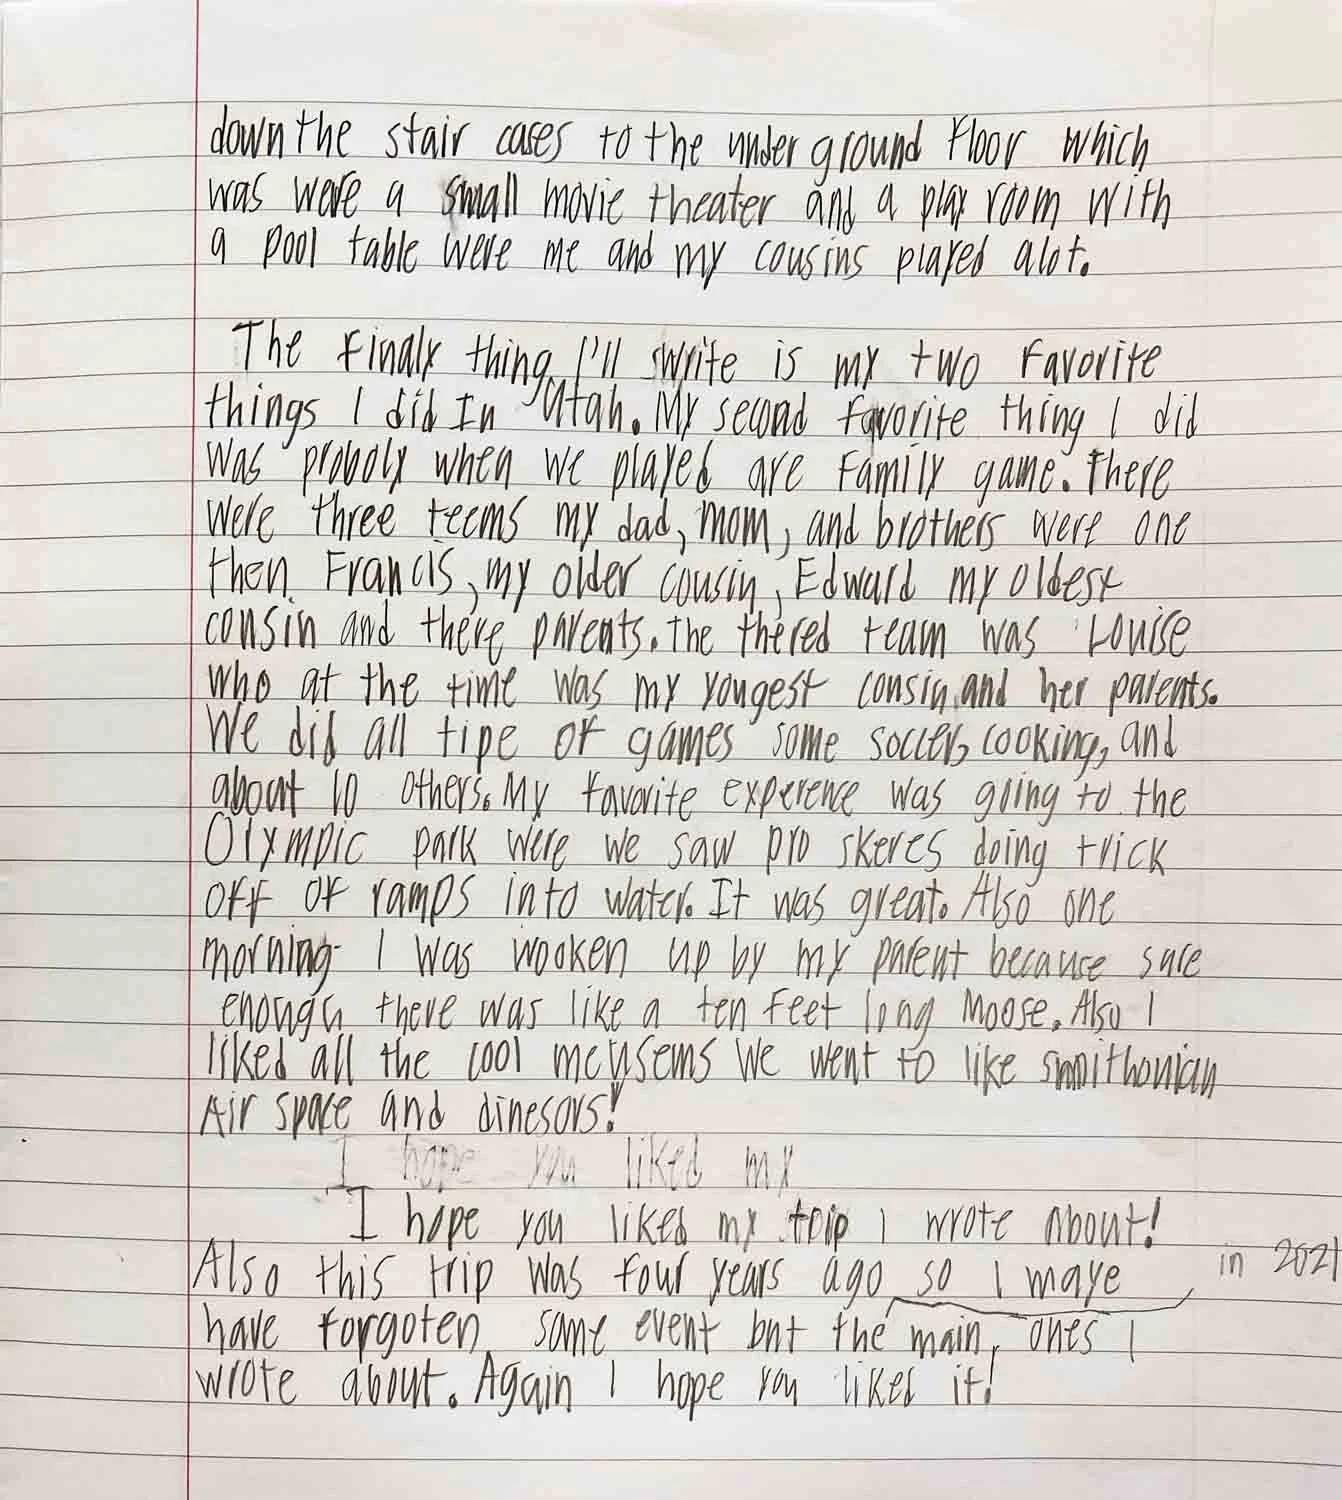 down the stair cases to the under ground floor which
was were a small movie theater and a play room with
a pool table were me and my cousins played alot.
The finaly thing I'll write is my two favorite
things I did In Utah. My second favorite thing I did
was proboly when we played are family game. There
were three teems my dad, mom, and brothers were one
then Francis, my older cousin, Edward my oldest
cousin and there parents. The thered team was Louise
who at the time was my yougest cousin and her parents.
We did all tipe of games some soccer, cooking, and
about 10 others. My favorite experence was going to the
Olympic park were we saw pro skeres doing trick
off of ramps into water. It was great. Also one
morning I was wooken up by my parent because sure
enough there was like a ten feet long Moose. Also I
liked all the cool meusems we went to like smithonian
Air space and dinesors!
I hope you liked my
I hope you liked my trip I wrote about!
Also this trip was four years ago so I maye in 2021
have forgoten some event but the main ones I
wrote about. Again I hope you liked it!